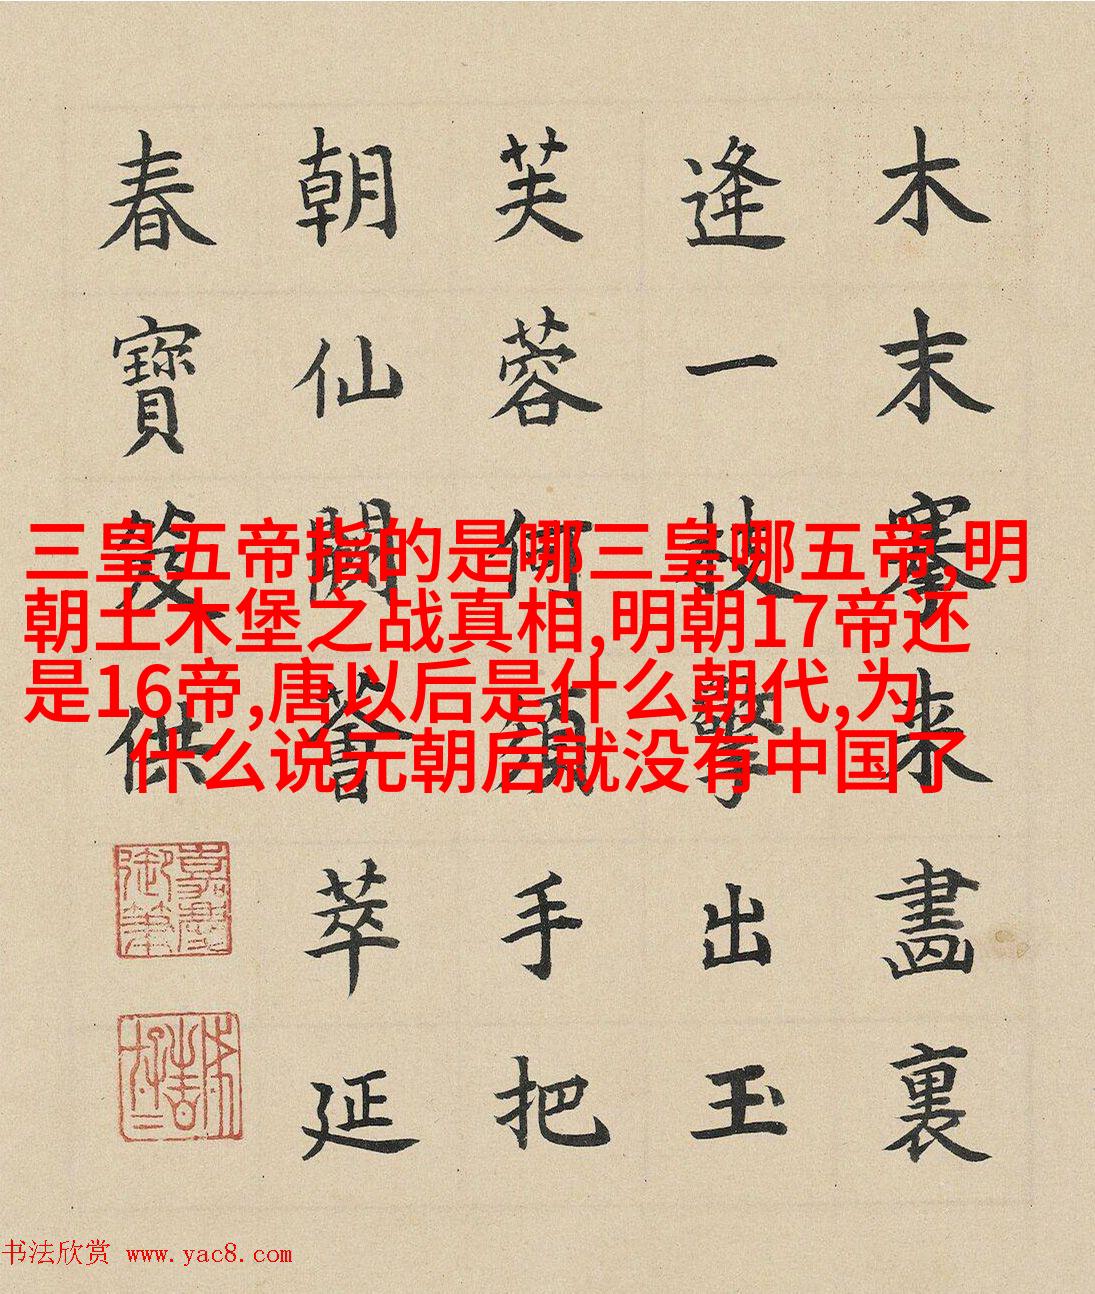 木末搴来畫裏
逢一枝擎出玉
芙蓉何須手把
朝仙闕薈萃延
春寶笈供
嘉慶御筆
三皇五帝指的是哪三皇哪五帝,明
朝土木堡之战真相,明朝17帝还
是16帝,唐以后是什么朝代,为
什么说元朝后就没有中国了
书法欣赏 www.yac8.com